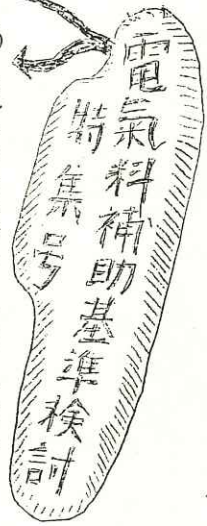 電氣料補助基準検討
特集号